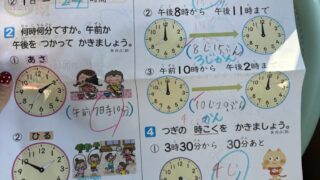 ① 1日= 24 時間
2 何時何分ですか。午前か
午後を つかって かきましょう。
① あさ
(午前7時10分)
② ひる
② 午後8時から 午後11時まで
3じかん
③ 午前10時から 午後2時まで
4 かん
4 つぎの 時こくを かきましょう。
① 3時30分から 30分あと
4じ